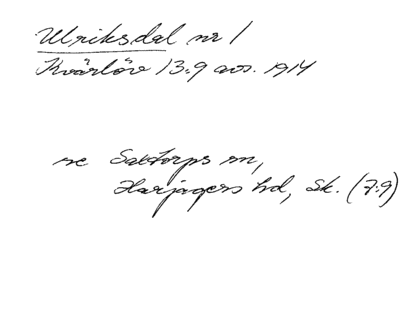 Ulriksdal nr 1
Kvärlöv 13:9 avs. 1914
se Saxtorps sn,
Harjagers hd, Sk. (7:9)